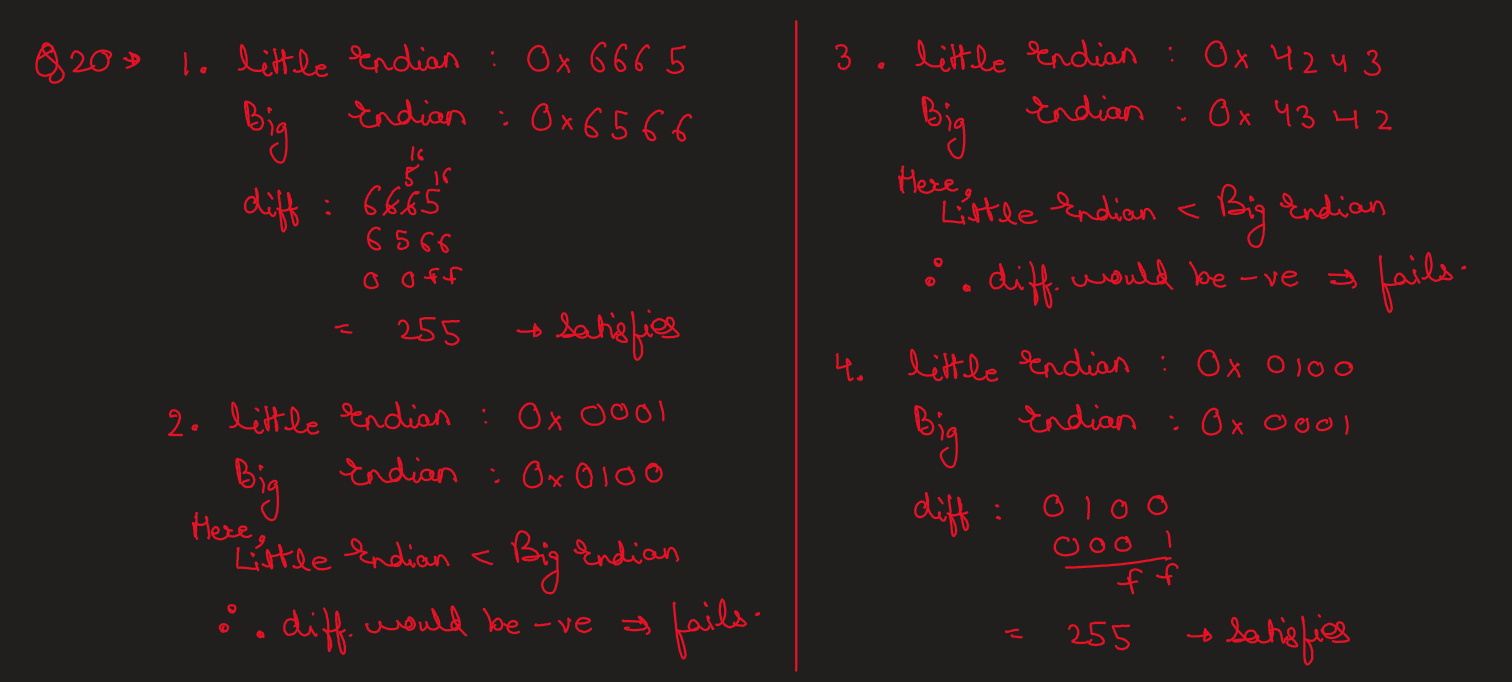 Q20→ 1. little Endian : 0x 6665
Big Endian : 0x6566
16
5 16
diff : 6665
6566
00ff
= 255 → Satisfies
2. little Endian : 0x 0001
Big Endian : 0x0100
Here,
Little Endian < Big Endian
∴ diff. would be -ve ⇒ fails.
3. little Endian : 0x 4243
Big Endian : 0x 4342
Here,
Little Endian < Big Endian
∴ diff. would be -ve ⇒ fails.
4. little Endian : 0x 0100
Big Endian : 0x 0001
diff : 0100
0001
ff
= 255 → Satisfies